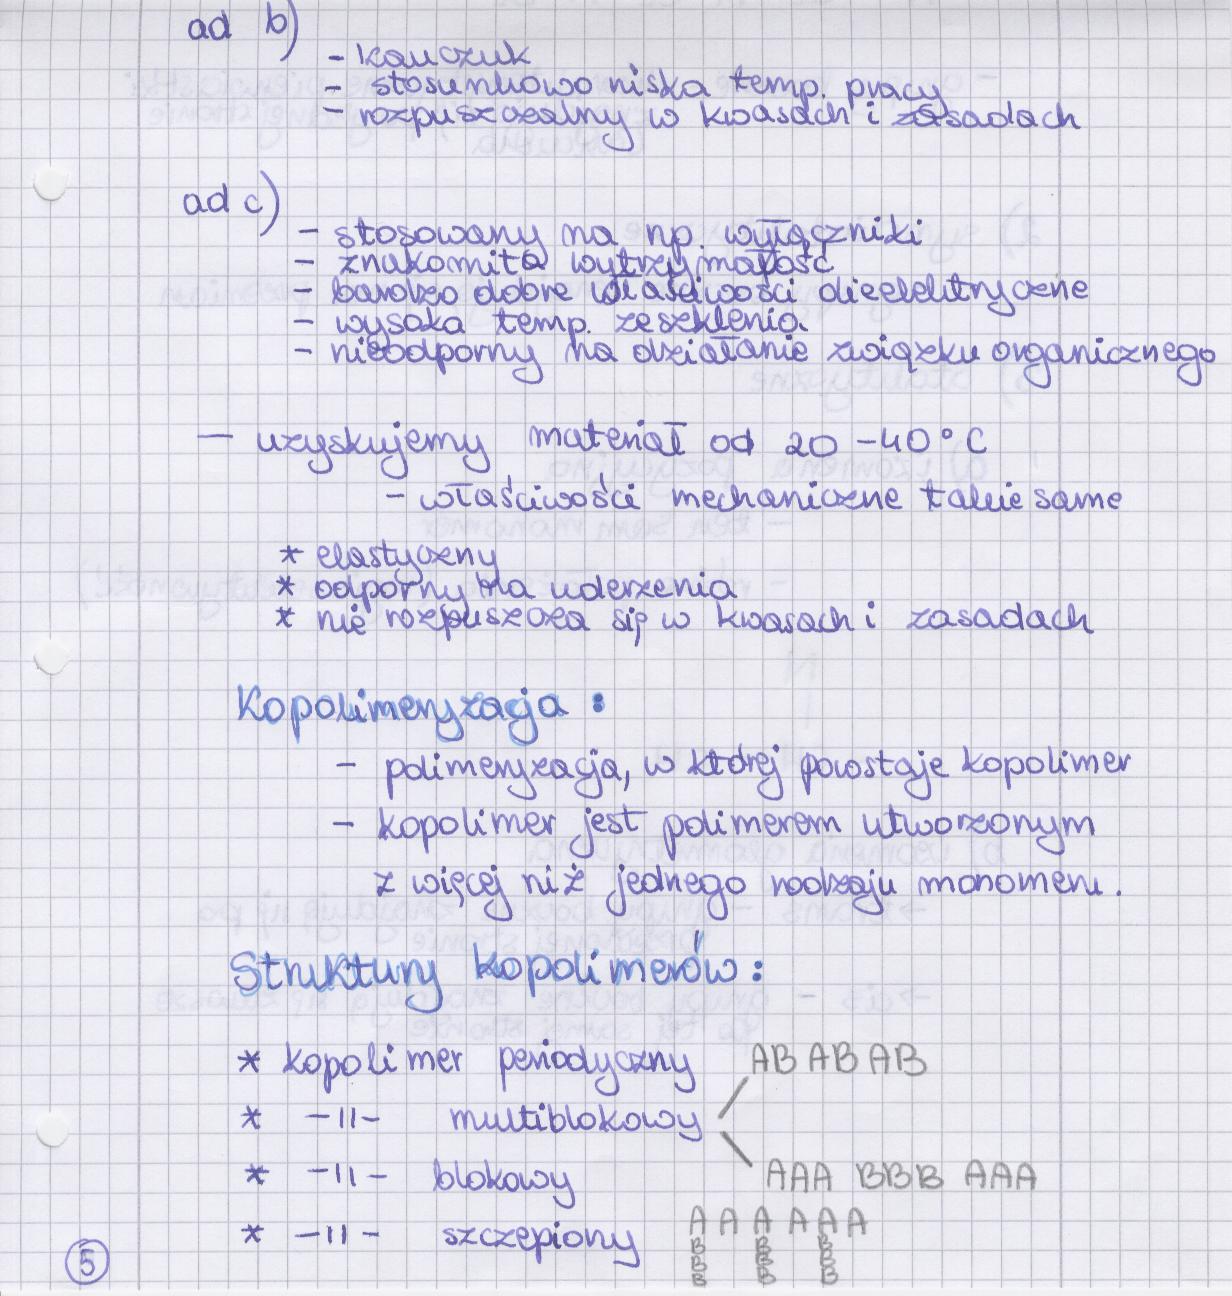 ad b)
- kauczuk
- stosunkowo niska temp. pracy
- rozpuszczalny w kwasach i zasadach
ad c)
- stosowany na np. wyłączniki
- znakomita wytrzymałość
- bardzo dobre właściwości dieelektryczne
- wysoka temp. zeszklenia
- nieodporny na działanie związku organicznego
— uzyskujemy materiał od 20 -40°C
- właściwości mechaniczne takie same
* elastyczny
* odporny na uderzenia
* nie rozpuszcza się w kwasach i zasadach
Kopolimeryzacja:
- polimeryzacja, w której powstaje kopolimer
- kopolimer jest polimerem utworzonym
z więcej niż jednego rodzaju monomeru.
Struktury kopolimerów:
* kopolimer periodyczny AB AB AB
* -II- multiblokowy
* -II- blokowy AAA BBB AAA
* -II- szczepiony A A A A A A
B B B
B B B
B B B
B
5